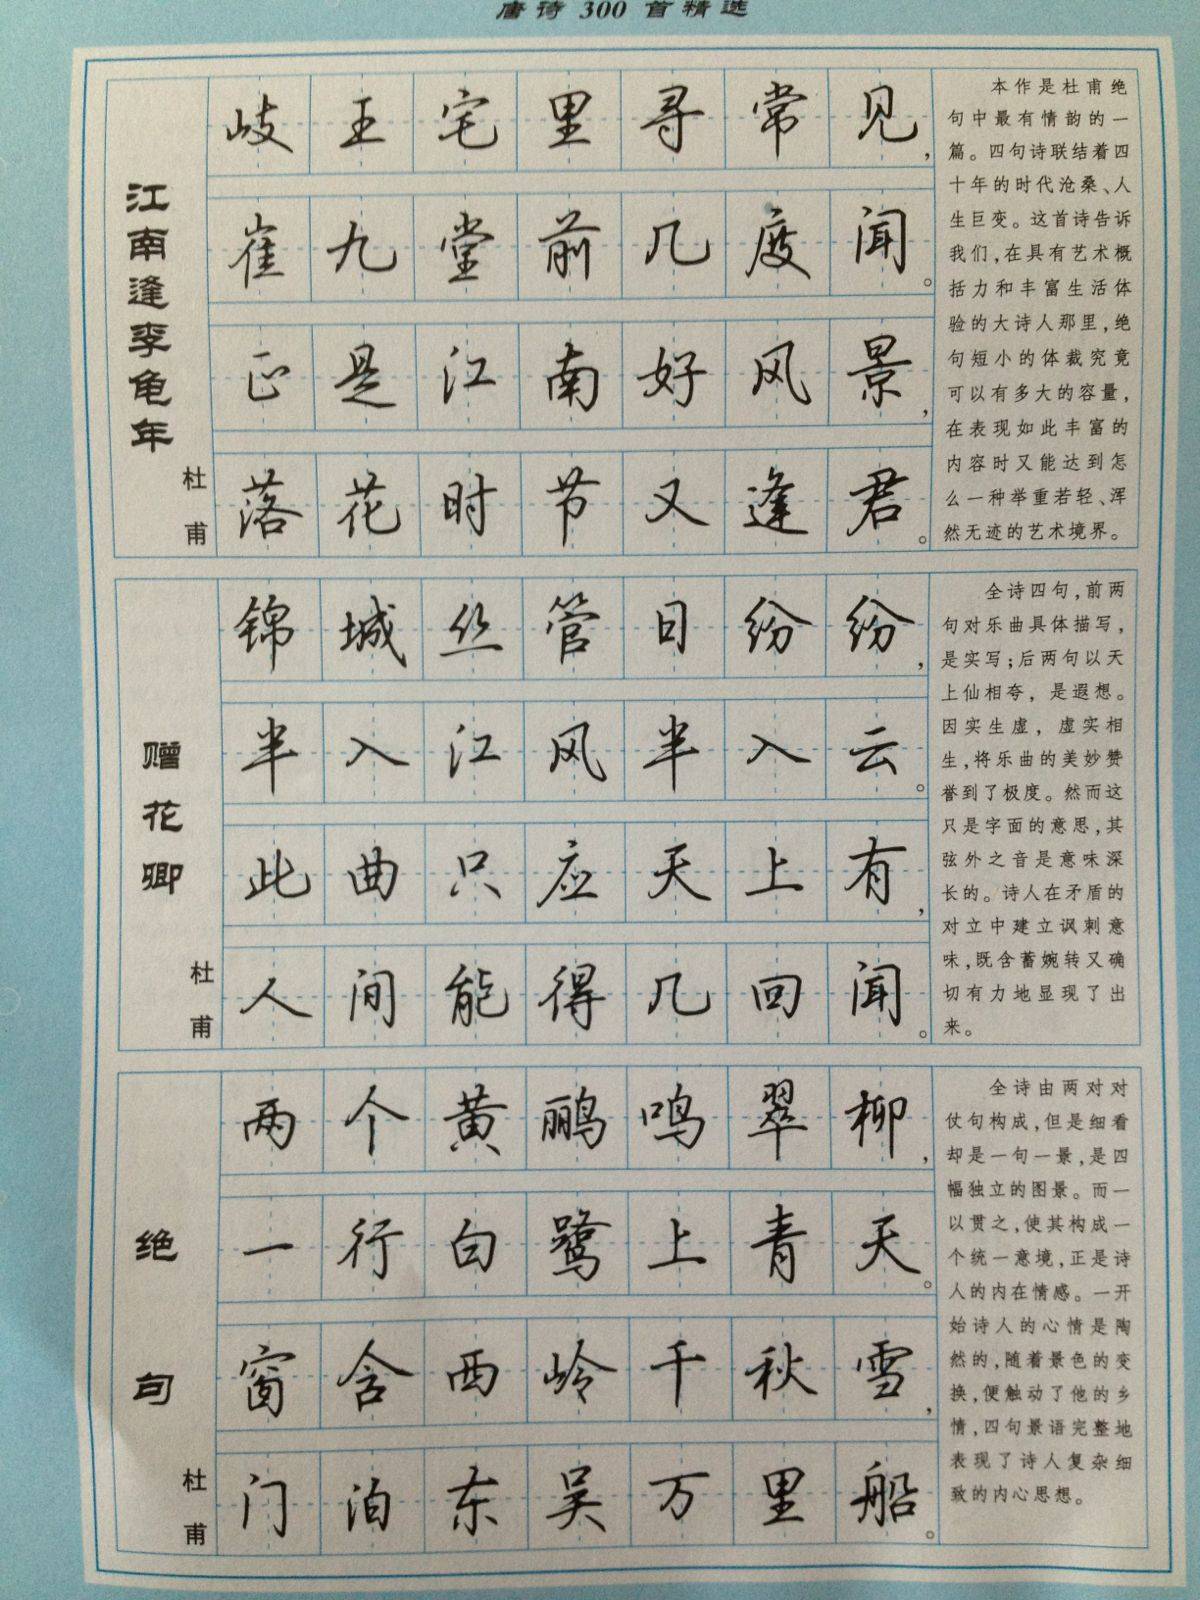 唐诗 300 首精选
江南逢李龟年
杜甫
岐王宅里寻常见，
崔九堂前几度闻。
正是江南好风景，
落花时节又逢君。
本作是杜甫绝
句中最有情韵的一
篇。四句诗联结着四
十年的时代沧桑、人
生巨变。这首诗告诉
我们，在具有艺术概
括力和丰富生活体
验的大诗人那里，绝
句短小的体裁究竟
可以有多大的容量，
在表现如此丰富的
内容时又能达到怎
么一种举重若轻、浑
然无迹的艺术境界。
赠花卿
杜甫
锦城丝管日纷纷，
半入江风半入云。
此曲只应天上有，
人间能得几回闻。
全诗四句，前两
句对乐曲具体描写，
是实写；后两句以天
上仙相夸，是遐想。
因实生虚，虚实相
生，将乐曲的美妙赞
誉到了极度。然而这
只是字面的意思，其
弦外之音是意味深
长的。诗人在矛盾的
对立中建立讽刺意
味，既含蓄婉转又确
切有力地显现了出
来。
绝句
杜甫
两个黄鹂鸣翠柳，
一行白鹭上青天。
窗含西岭千秋雪，
门泊东吴万里船。
全诗由两对对
仗句构成，但是细看
却是一句一景，是四
幅独立的图景。而一
以贯之，使其构成一
个统一意境，正是诗
人的内在情感。一开
始诗人的心情是陶
然的，随着景色的变
换，便触动了他的乡
情，四句景语完整地
表现了诗人复杂细
致的内心思想。